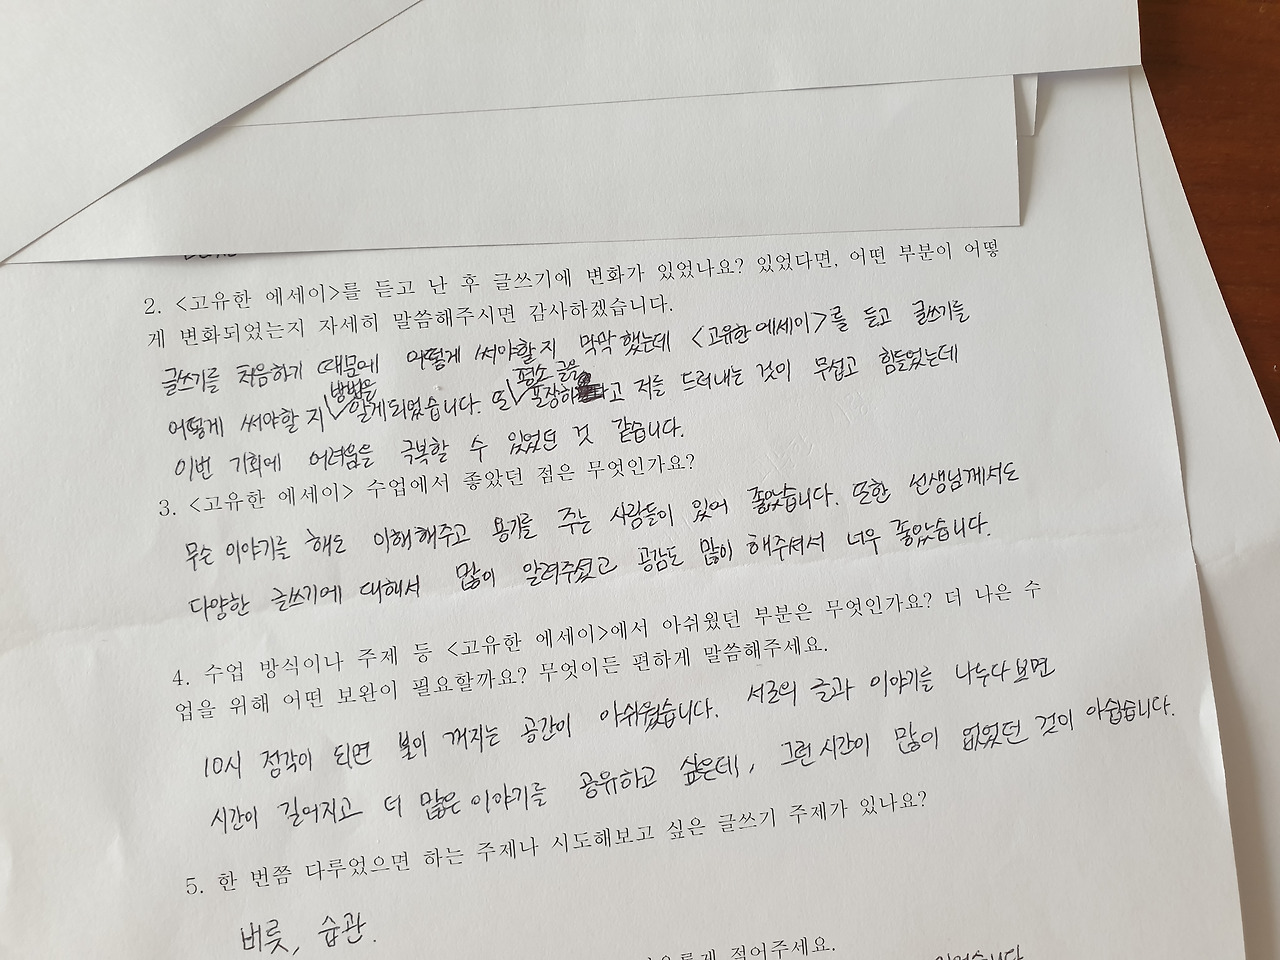 2. <고유한 에세이>를 듣고 난 후 글쓰기에 변화가 있었나요? 있었다면, 어떤 부분이 어떻
게 변화되었는지 자세히 말씀해주시면 감사하겠습니다.
글쓰기를 처음하기 때문에 어떻게 써야할지 막막했는데 <고유한 에세이>를 듣고 글쓰기를
어떻게 써야할지 방법을 알게되었습니다. 또 평소 글을 포장하고 저를 드러내는 것이 무섭고 힘들었는데
이번 기회에 어려움을 극복할 수 있었던 것 같습니다.
3. <고유한 에세이> 수업에서 좋았던 점은 무엇인가요?
무슨 이야기를 해도 이해해주고 용기를 주는 사람들이 있어 좋았습니다. 또한 선생님께서도
다양한 글쓰기에 대해서 많이 알려주셨고 공감도 많이 해주셔서 너무 좋았습니다.
4. 수업 방식이나 주제 등 <고유한 에세이>에서 아쉬웠던 부분은 무엇인가요? 더 나은 수
업을 위해 어떤 보완이 필요할까요? 무엇이든 편하게 말씀해주세요.
10시 정각이 되면 불이 꺼지는 공간이 아쉬웠습니다. 서로의 글과 이야기를 나누다보면
시간이 길어지고 더 많은 이야기를 공유하고 싶은데, 그런 시간이 많이 없었던 것이 아쉽습니다.
5. 한 번쯤 다루었으면 하는 주제나 시도해보고 싶은 글쓰기 주제가 있나요?
버릇, 습관.
적어주세요.